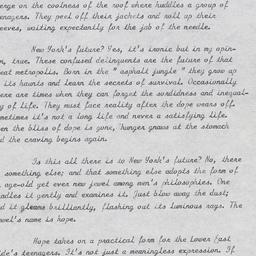 erge on the coolness of the roof where huddles a group of
enagers. They peel off their jackets and roll up their
eeves, waiting expectantly for the jab of the needle.
New York's future? Yes, it's ironic but in my opin-
n, true. These confused delinquents are the future of that
eat metropolis. Born in the "asphalt jungle" they grow up
its haunts and learn the secrets of survival. Occasionally
ere are times when they can forget the sordidness and inequal-
y of life. They must face reality after the dope wears off.
metimes it's not a long life and never a satisfying life.
en the bliss of dope is gone, hunger gnaws at the stomach
d the craving begins again.
Is this all there is to New York's future? No, there
something else; and that something else adopts the form of
age-old yet ever new jewel among men's philosophies. One
ndles it gently and examines it. Just blow away the dust;
d it gleams brilliantly, flashing out its luminous rays. The
wel's name is hope.
Hope takes on a practical form for the Lower East
de's teenagers. It's not just a meaningless expression. If